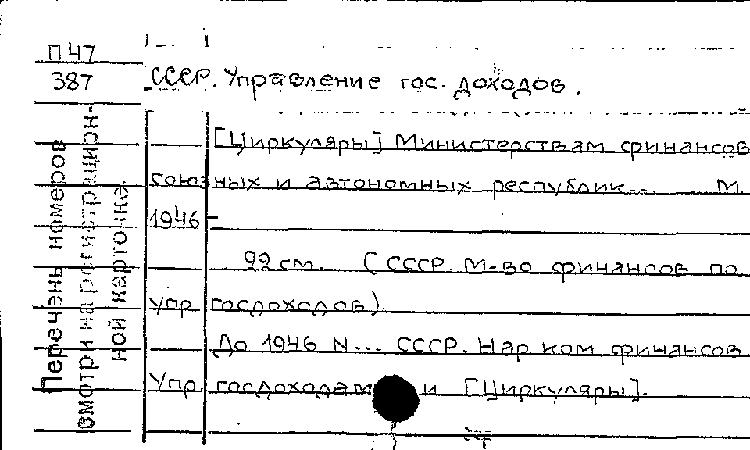 П47
387
СССР. Управление гос. доходов.
[Циркуляры] Министерствам финансов
союзных и автономных республик... М.
1946-
22 см. (СССР. М-во финансов по
упр госдоходов)
До 1946 N... СССР. Нар ком финансов
Упр госдоходами и [Циркуляры].
Перечень номеров
смотри на регистрацион-
ной карточке.